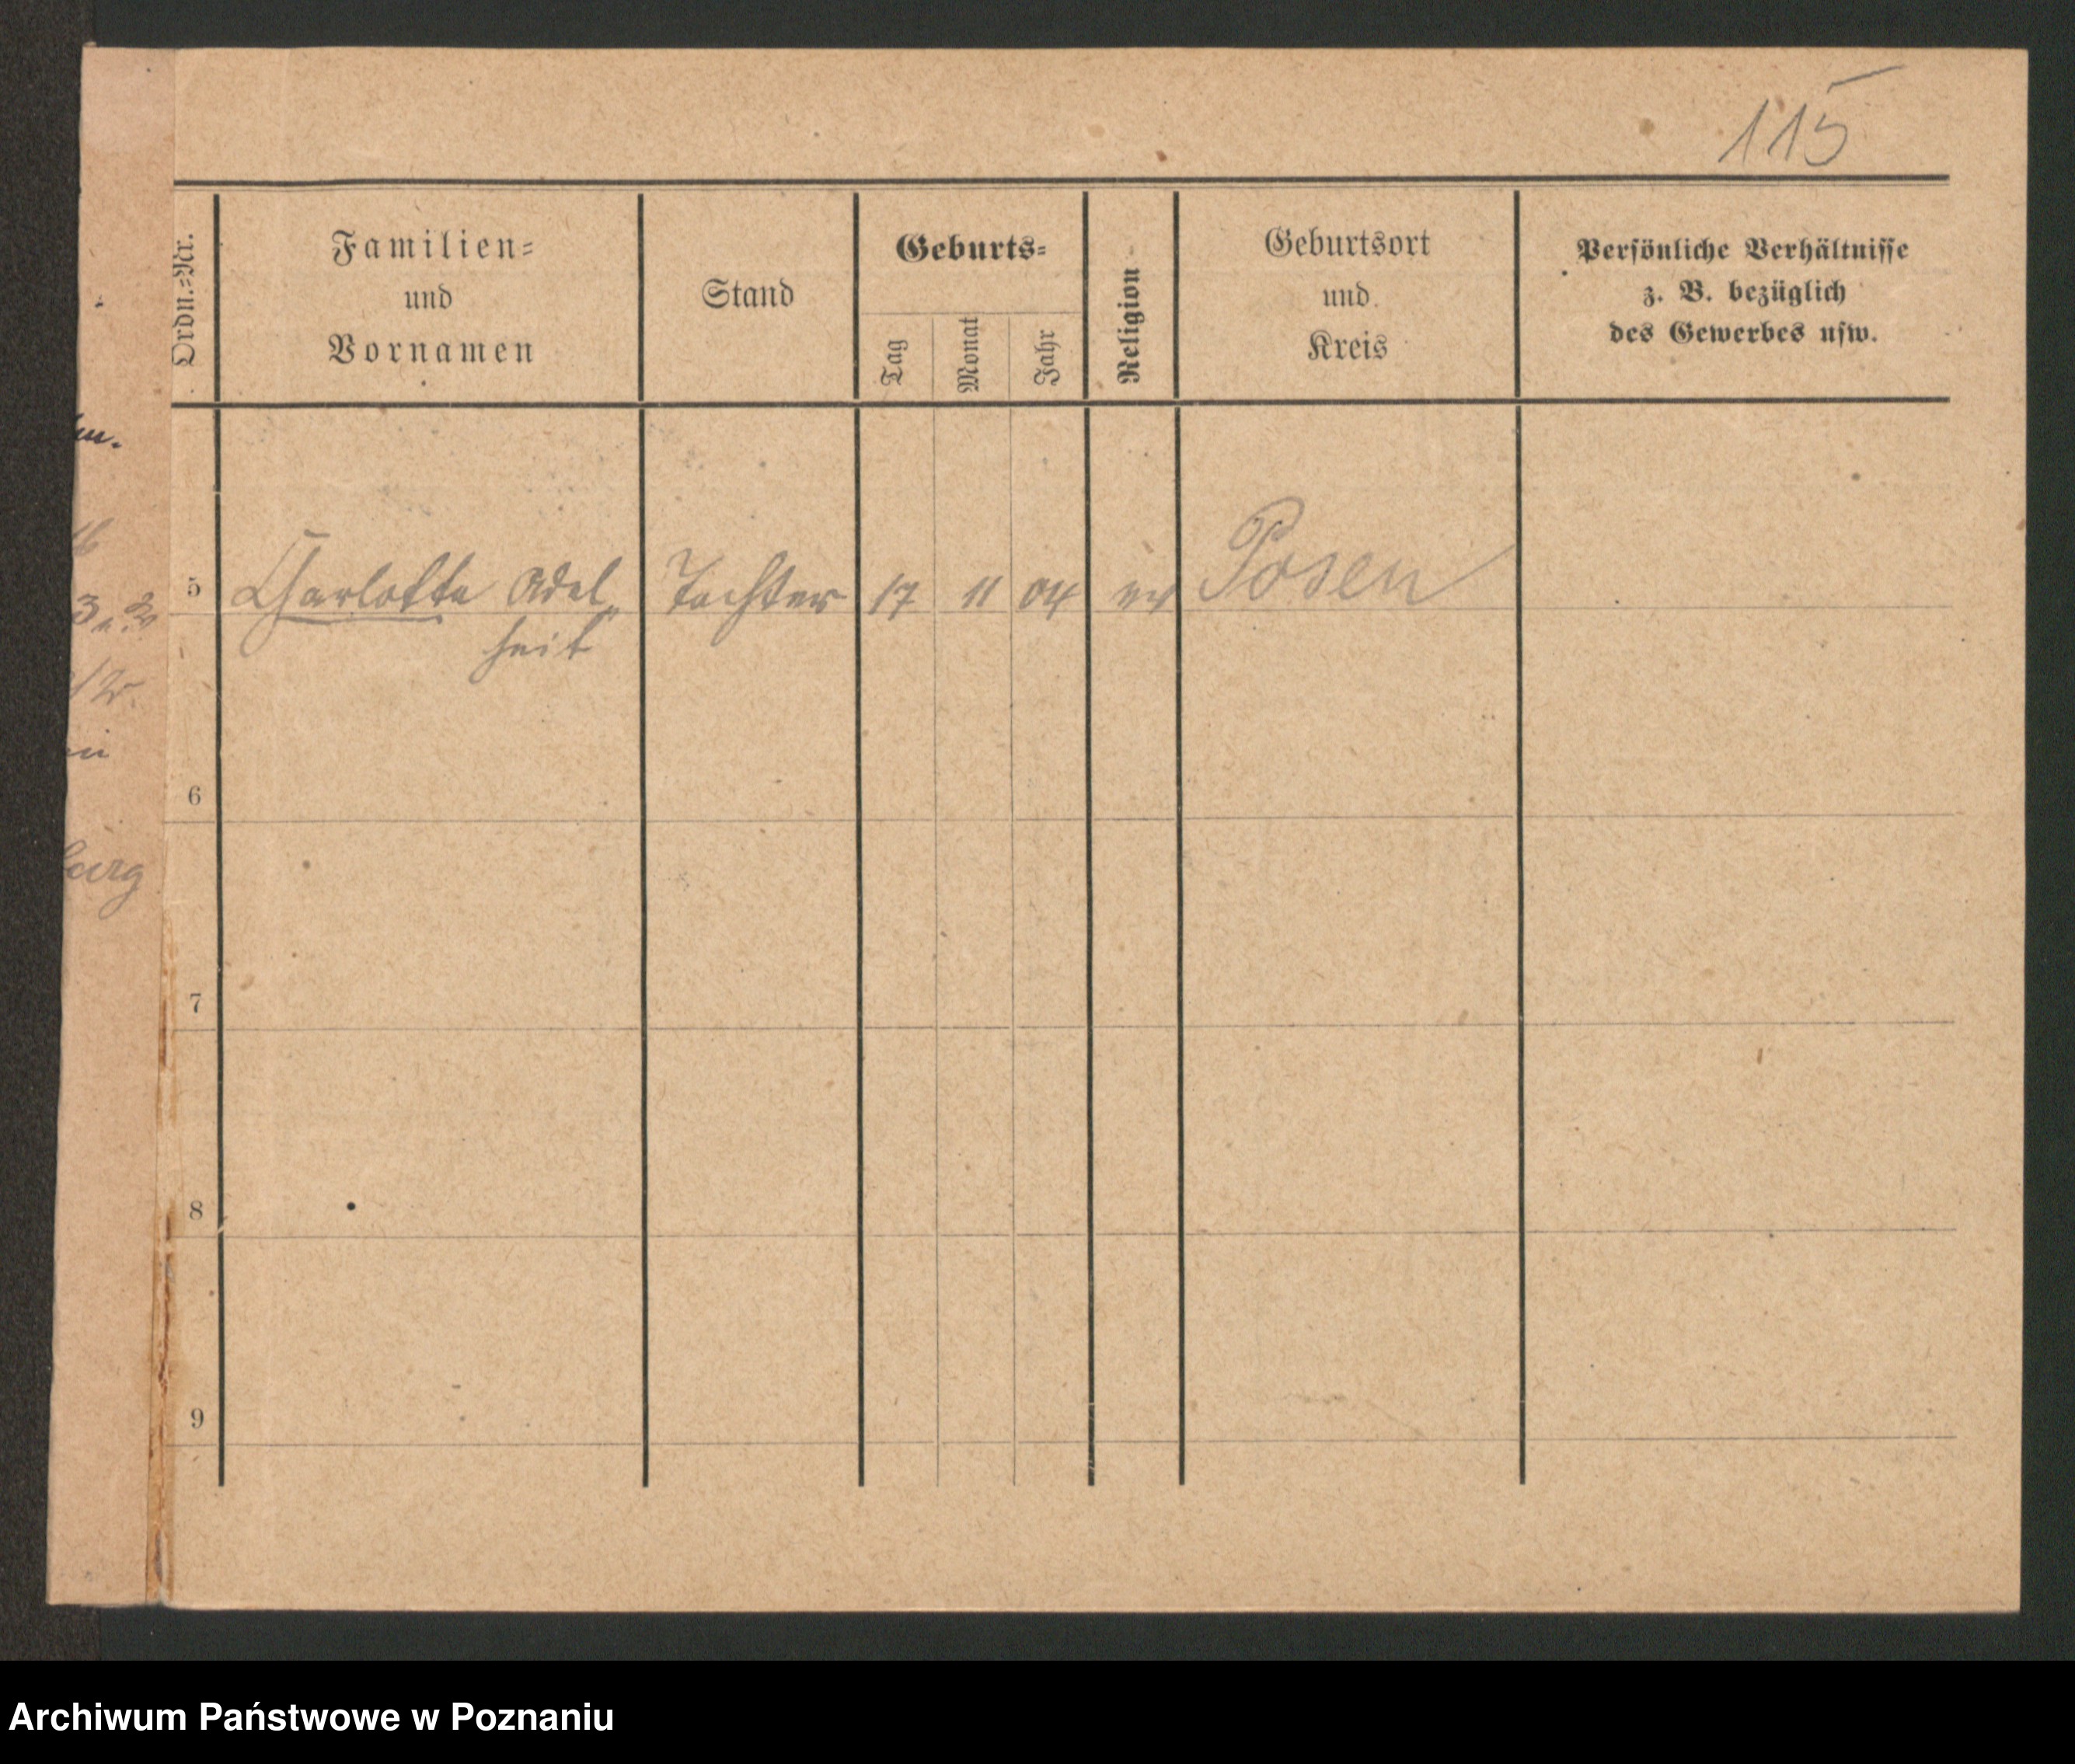 115
Ordn.=Nr.
Familien=
und
Vornamen
Stand
Geburts=
Tag
Monat
Jahr
Religion
Geburtsort
und
Kreis
Persönliche Verhältnisse
z. B. bezüglich
des Gewerbes usw.
5 Charlotte Adel„ Tochter 17 11 04 ev Posen
heit
6
7
8
9
burg
Archiwum Państwowe w Poznaniu